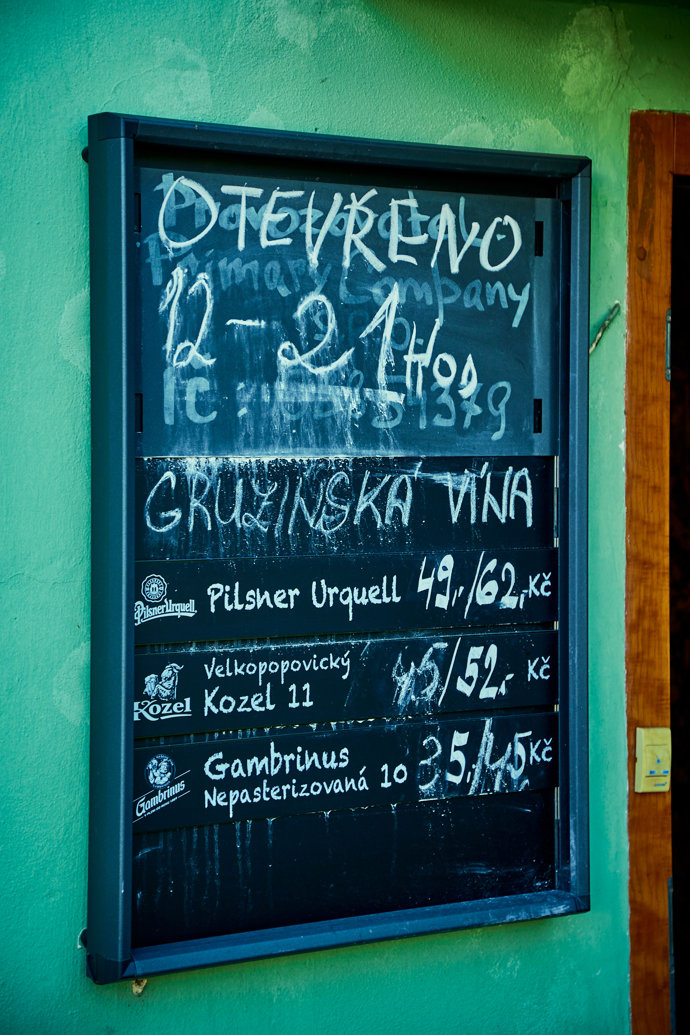 OTEVŘENO
Provozovatel
Primary Company
12-21 Hod
s.r.o.
IČ:
GRUZINSKÁ VÍNA
PilsnerUrquell
Pilsner Urquell 49,-/62,-Kč
Kozel
Velkopopovický
Kozel 11 45/52,- Kč
Gambrinus
Gambrinus
Nepasterizovaná 10 35,-/45 Kč